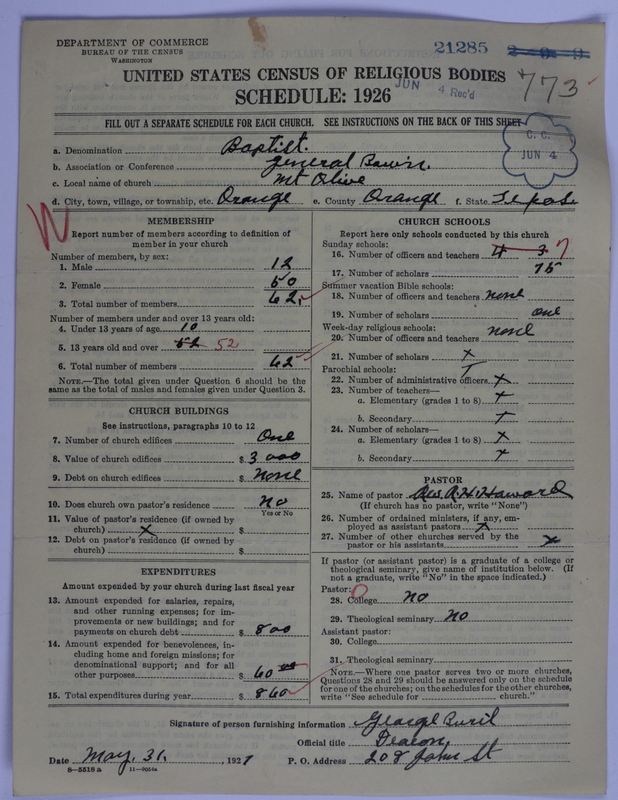 DEPARTMENT OF COMMERCE
BUREAU OF THE CENSUS
WASHINGTON
21285
773
UNITED STATES CENSUS OF RELIGIOUS BODIES
JUN 4 Rec'd
SCHEDULE: 1926
FILL OUT A SEPARATE SCHEDULE FOR EACH CHURCH. SEE INSTRUCTIONS ON THE BACK OF THIS SHEET
C. C.
JUN 4
a. Denomination Baptist.
b. Association or Conference General Bowin.
c. Local name of church Mt Olive
d. City, town, village, or township, etc. Orange e. County Orange f. State Texas
MEMBERSHIP
Report number of members according to definition of
member in your church
Number of members, by sex:
1. Male 12
2. Female 50
3. Total number of members 62
Number of members under and over 13 years old:
4. Under 13 years of age 10
5. 13 years old and over 52 52
6. Total number of members 62
NOTE.—The total given under Question 6 should be the
same as the total of males and females given under Question 3.
CHURCH BUILDINGS
See instructions, paragraphs 10 to 12
7. Number of church edifices One
8. Value of church edifices $ 3000
9. Debt on church edifices $ None
10. Does church own pastor's residence No
Yes or No
11. Value of pastor's residence (if owned by
church) x $
12. Debt on pastor's residence (if owned by
church) $
EXPENDITURES
Amount expended by your church during last fiscal year
13. Amount expended for salaries, repairs,
and other running expenses; for im-
provements or new buildings; and for
payments on church debt $ 800
14. Amount expended for benevolences, in-
cluding home and foreign missions; for
denominational support; and for all
other purposes $ 60
15. Total expenditures during year $ 860
CHURCH SCHOOLS
Report here only schools conducted by this church
Sunday schools:
16. Number of officers and teachers 4 3 7
17. Number of scholars 75
Summer vacation Bible schools:
18. Number of officers and teachers none
19. Number of scholars one
Week-day religious schools:
20. Number of officers and teachers none
21. Number of scholars x
Parochial schools:
22. Number of administrative officers x
23. Number of teachers—
a. Elementary (grades 1 to 8) x
b. Secondary x
24. Number of scholars—
a. Elementary (grades 1 to 8) x
b. Secondary x
PASTOR
25. Name of pastor Rev. R. H. Haward
(If church has no pastor, write "None")
26. Number of ordained ministers, if any, em-
ployed as assistant pastors x
27. Number of other churches served by the
pastor or his assistants x
If pastor (or assistant pastor) is a graduate of a college or
theological seminary, give name of institution below. (If
not a graduate, write "No" in the space indicated.)
Pastor:
28. College No
29. Theological seminary No
Assistant pastor:
30. College
31. Theological seminary
NOTE.—Where one pastor serves two or more churches,
Questions 28 and 29 should be answered only on the schedule
for one of the churches; on the schedules for the other churches,
write "See schedule for church."
Signature of person furnishing information George
Official title Deacon
Date May. 31. , 1927 P. O. Address 208 John St
8—5518 a 11—9054a